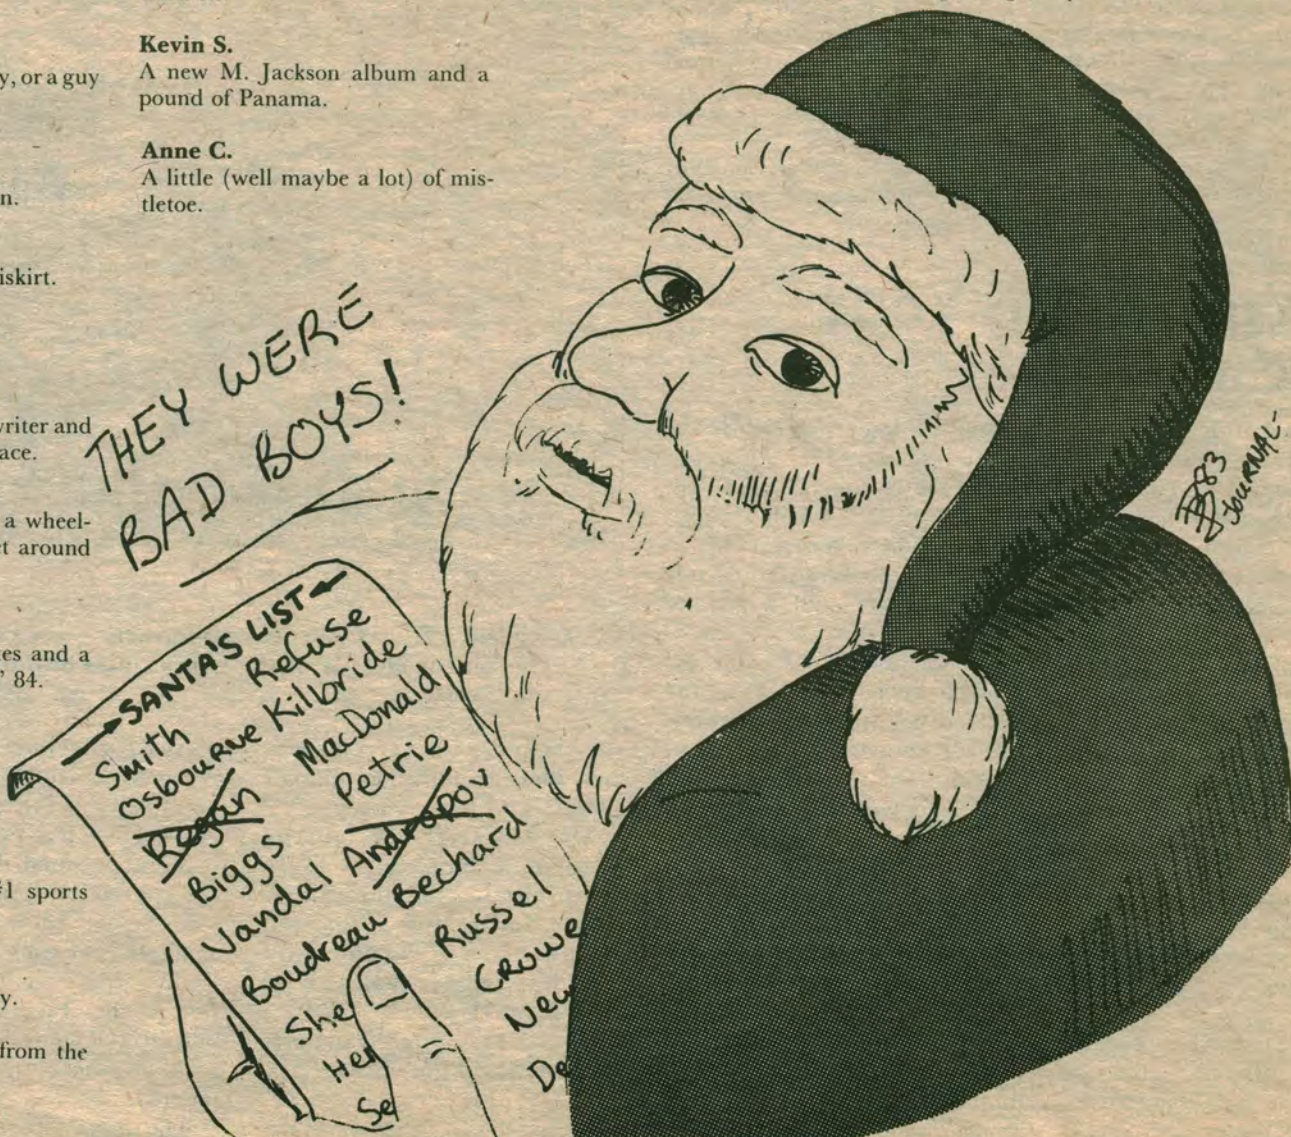 y, or a guy
n.
iskirt.
writer and
ace.
a wheel-
t around
es and a
' 84.
#1 sports
y.
from the
Kevin S.
A new M. Jackson album and a
pound of Panama.
Anne C.
A little (well maybe a lot) of mis-
tletoe.
THEY WERE
BAD BOYS!
SANTA'S LIST
Smith Refuse
Osbourne Kilbride
Regan MacDonald
Biggs Petrie
Vandal Andropov
Boudreau Bechard
She Russel
Her Crowe
Se New
De
83
JOURNAL